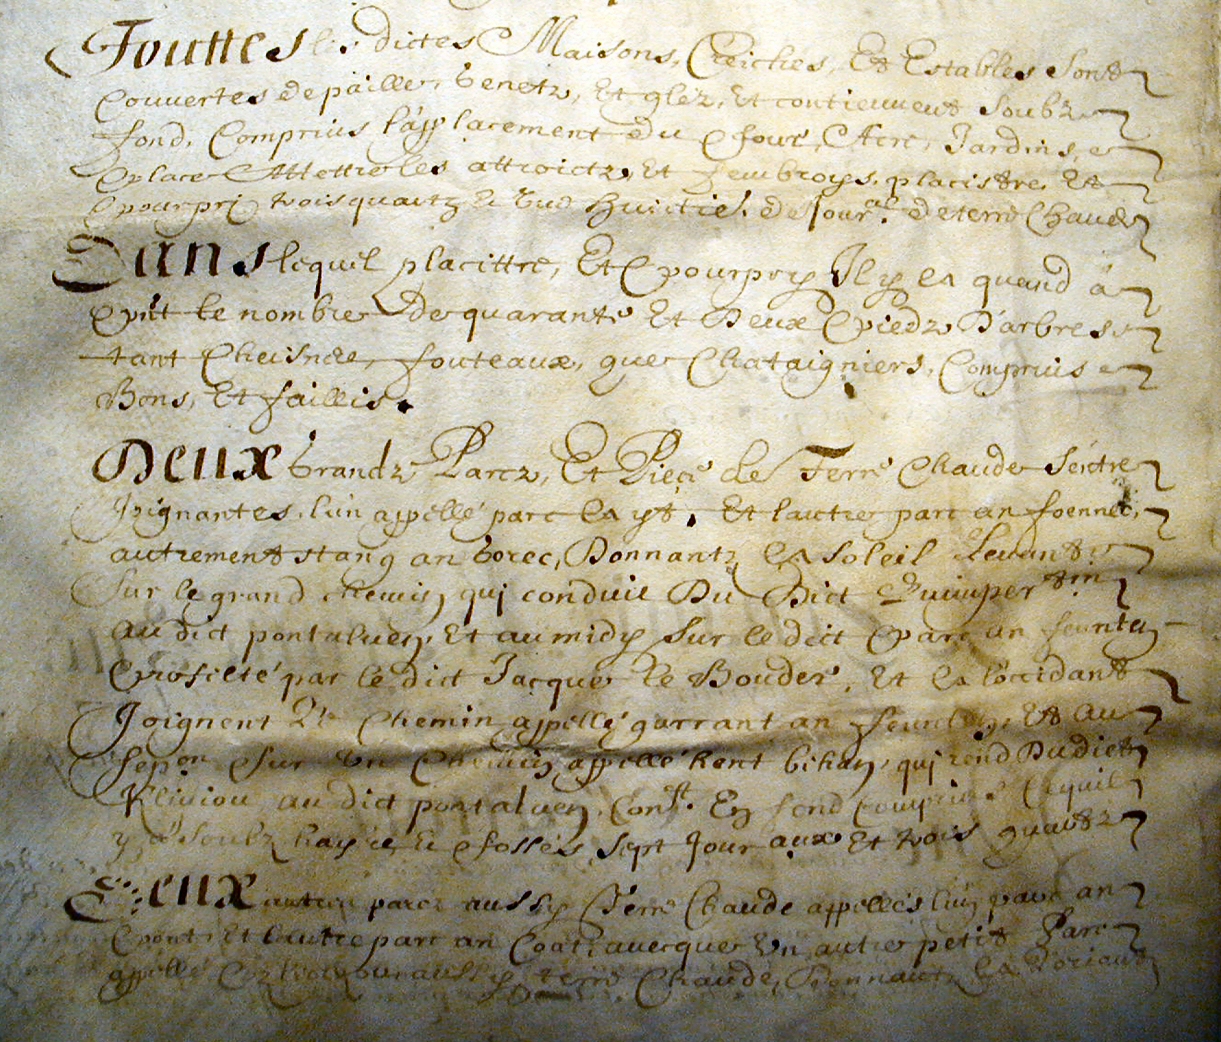 Touttes les dictes Maisons, Creiches, Et Estables sont
couvertes de paille, Genetz, Et glez, Et contiennent soubz
fond, Comprins l'applacement du four, Aire, Jardins, e
place attoictz, Et placistre Et
pourpri trois quartz Et de terre Chaude
Dans lequel placittre, Et pourpry Il y ea quand á
pnt le nombre De quarante Et Deux piedz D'arbres
tant Cheisnes, fouteaux, que Chataigniers, Comprins e
Bons, Et faillis.
Deux Grandz Parcz, Et Piece de Terre Chaude s'entre
Joignantes, l'ún appellé parc ea yt, Et lautre parc an foennec,
autrement stang an Gorec, Donnantz ea soleil Levant
Sur le grand chemin qui conduit Du Dict Quimper
au dict pontaluen, Et au midy sur le dict parc an feuntu
proffitté par le dict Jacque le Bouder, Et ea l'occidant
Joignent Le Chemin appellé garrant an feunteun, Et au
sepon sur Un Chemin appellé hent bihan, qui rend Du dict
Kliviou au dict pontaluen, Cont En fond comprins
y soubz hayë Et fossés, sept Jour aux Et trois quartz
Deux autres parcz aussy Terre Chaude appellés l'un parc an
pont, Et l'autre parc an Coat, avecque Un autre petit Parc
appellé aussy terre Chaude, Donnantz ea L'oriant